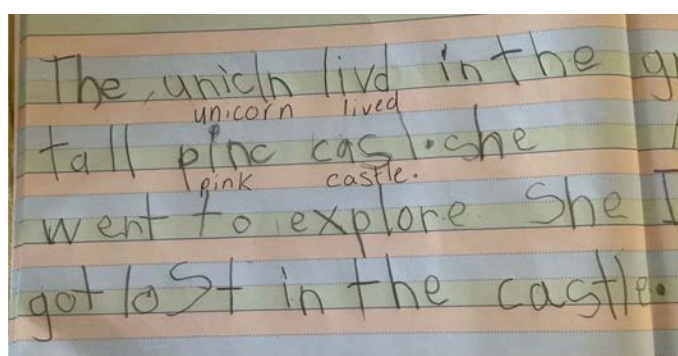 The unicln livd in the
unicorn lived
tall pinc casl. she
pink castle.
went to explore She I
got lost in the castle.